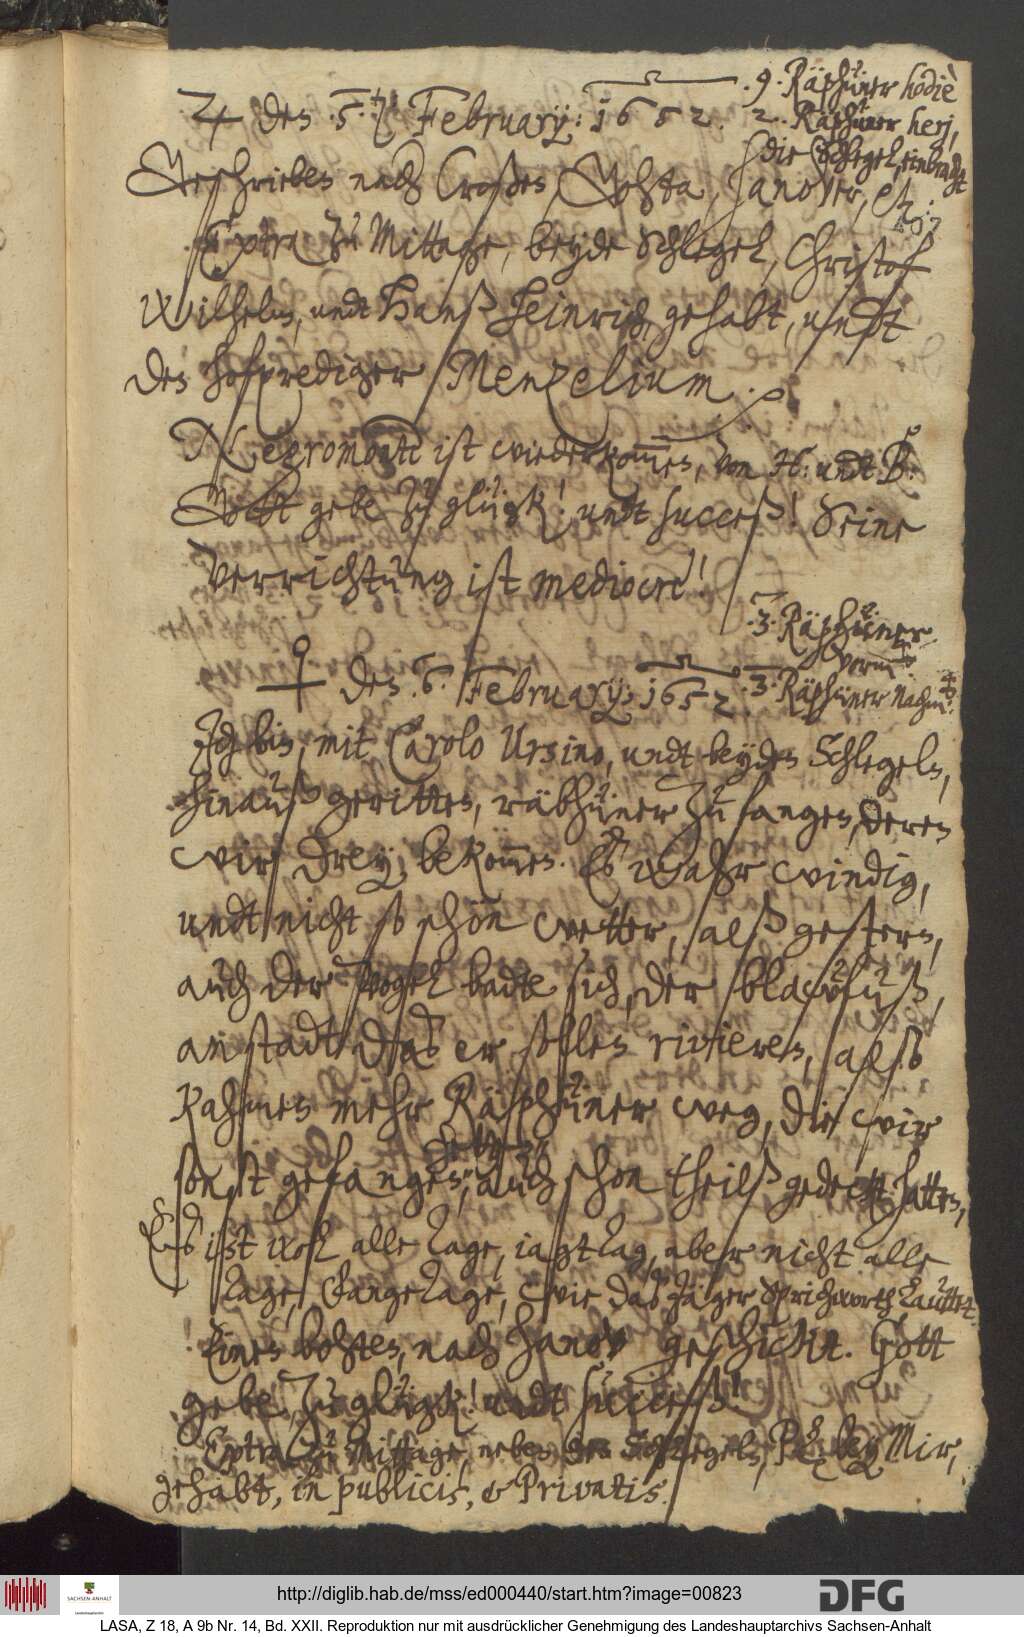 9. Räphüner hodiè
♃ den 5. t: February: 1652. 2. Räphüner herj,
die Schlegel, einbracht
Geschrieben nach Croßen, Gohta, Hanover, etc:
Extra zu Mittage, beyde Schlegel, Christof
Wilhelm, undt Hanß Heinrich gehabt, undt
den hofprediger Menzelium.
Negromonte ist wiederkommen, von H: undt B:
Gott gebe zu glügk! undt succeß! Seine
verrichtung ist mediocre!
3. Räphüner
vorm
♀ den 6. February: 1652. 3. Räphüner nachm:
Jch bin, mit Carolo Ursino, undt beyden Schlegeln,
hinauß geritten, räbhüner zu fangen, deren
wir drey, bekommen. Es wahr windig,
undt nicht so schön wetter, alß gestern,
auch der vogel badte sich, der blawfuß,
an stadt daß er sollen rivieren, alß
kahmen mehr Räphüner weg, die wir
sonst gefangen, auch schon theilß gedeckt hatten,
Es ist wol alle Tage, iagtTag, aber nicht alle
Tage, FangeTage, wie das Jäger Sprichworth Lauttet.
Einen bohten, nach Hanov geschickt. Gott
gebe, zu glügk! undt succeß!
Extra zu Mittage, neben den Schlegeln, bey Mir,
gehabt, in publicis, et Privatis.
http://diglib.hab.de/mss/ed000440/start.htm?image=00823
SACHSEN-ANHALT
Landeshauptarchiv
DFG
LASA, Z 18, A 9b Nr. 14, Bd. XXII. Reproduktion nur mit ausdrücklicher Genehmigung des Landeshauptarchivs Sachsen-Anhalt